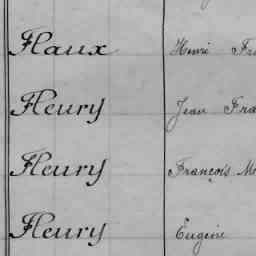 Flaux Henri
Fleury Jean
Fleury François
Fleury Eugène